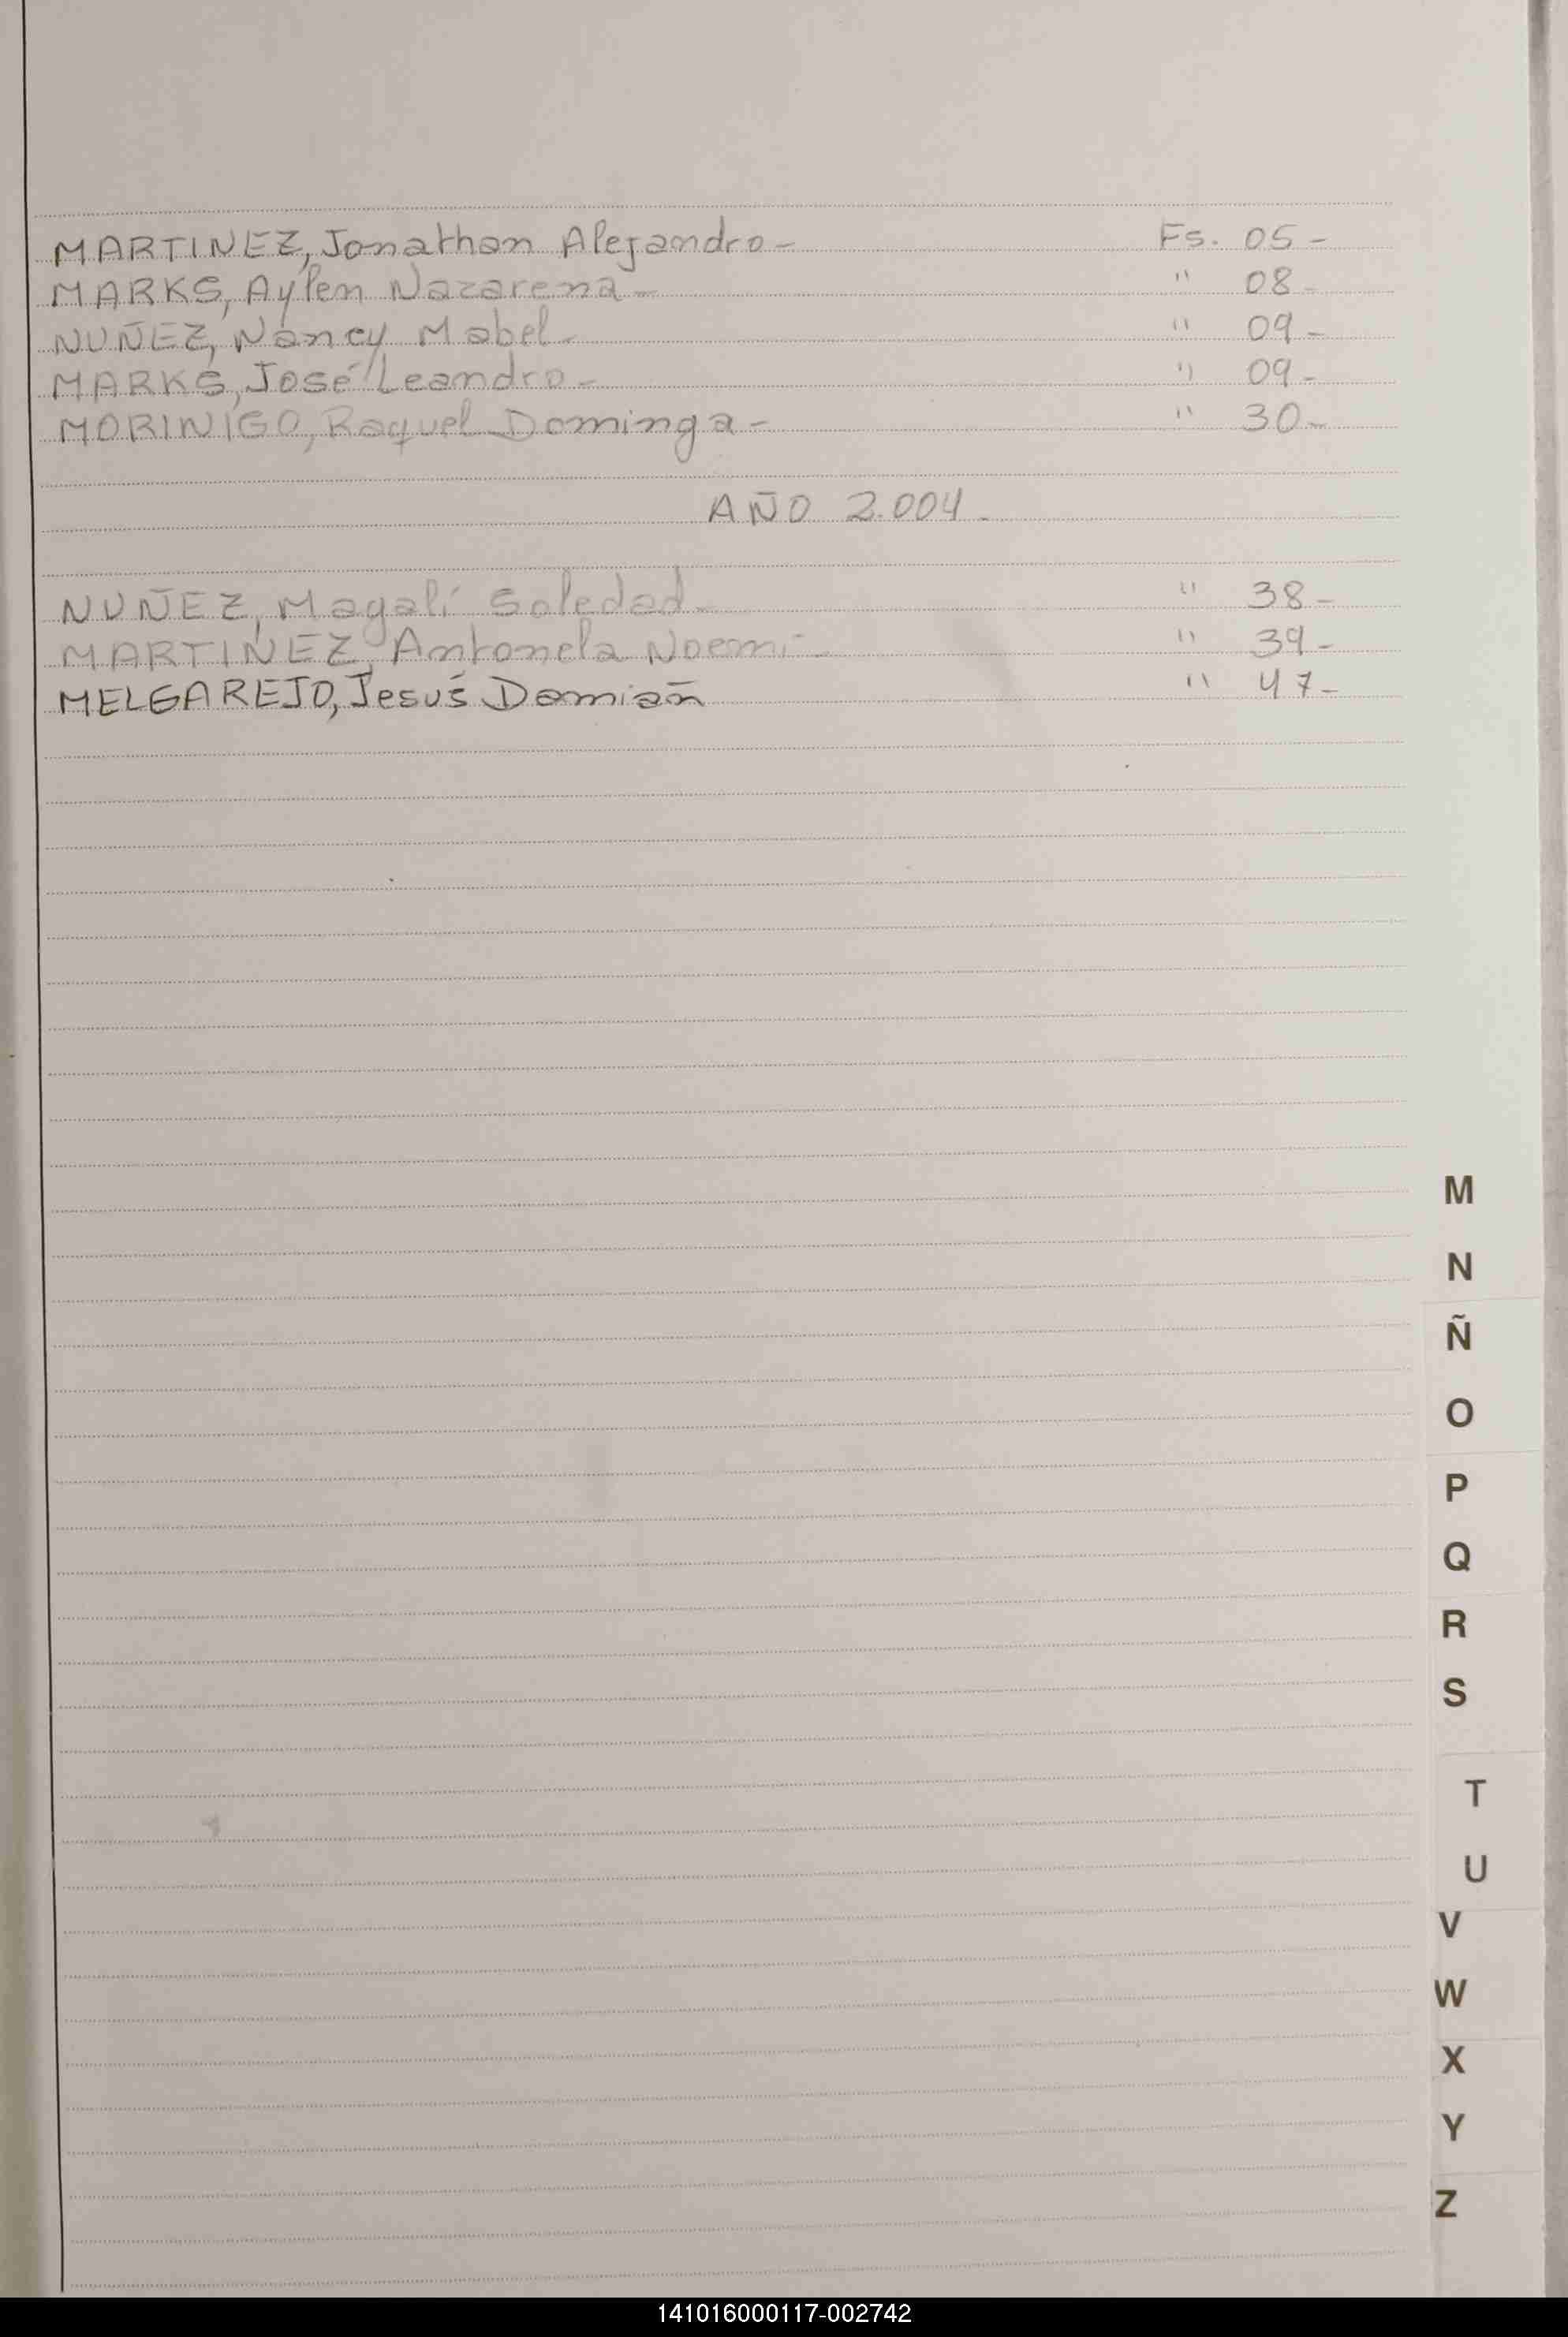 MARTINEZ, Jonathan Alejandro - Fs. 05 -
MARKS, Aylen Nazarena - " 08 -
NUÑEZ, Nancy Mabel - " 09 -
MARKS, José Leandro - " 09 -
MORINIGO, Raquel Dominga - " 30 -
AÑO 2.004 -
NUÑEZ, Magalí Soledad - " 38 -
MARTINEZ, Antonela Noemí - " 39 -
MELGAREJO, Jesús Damián " 47 -
M
N
Ñ
O
P
Q
R
S
T
U
V
W
X
Y
Z
141016000117-002742